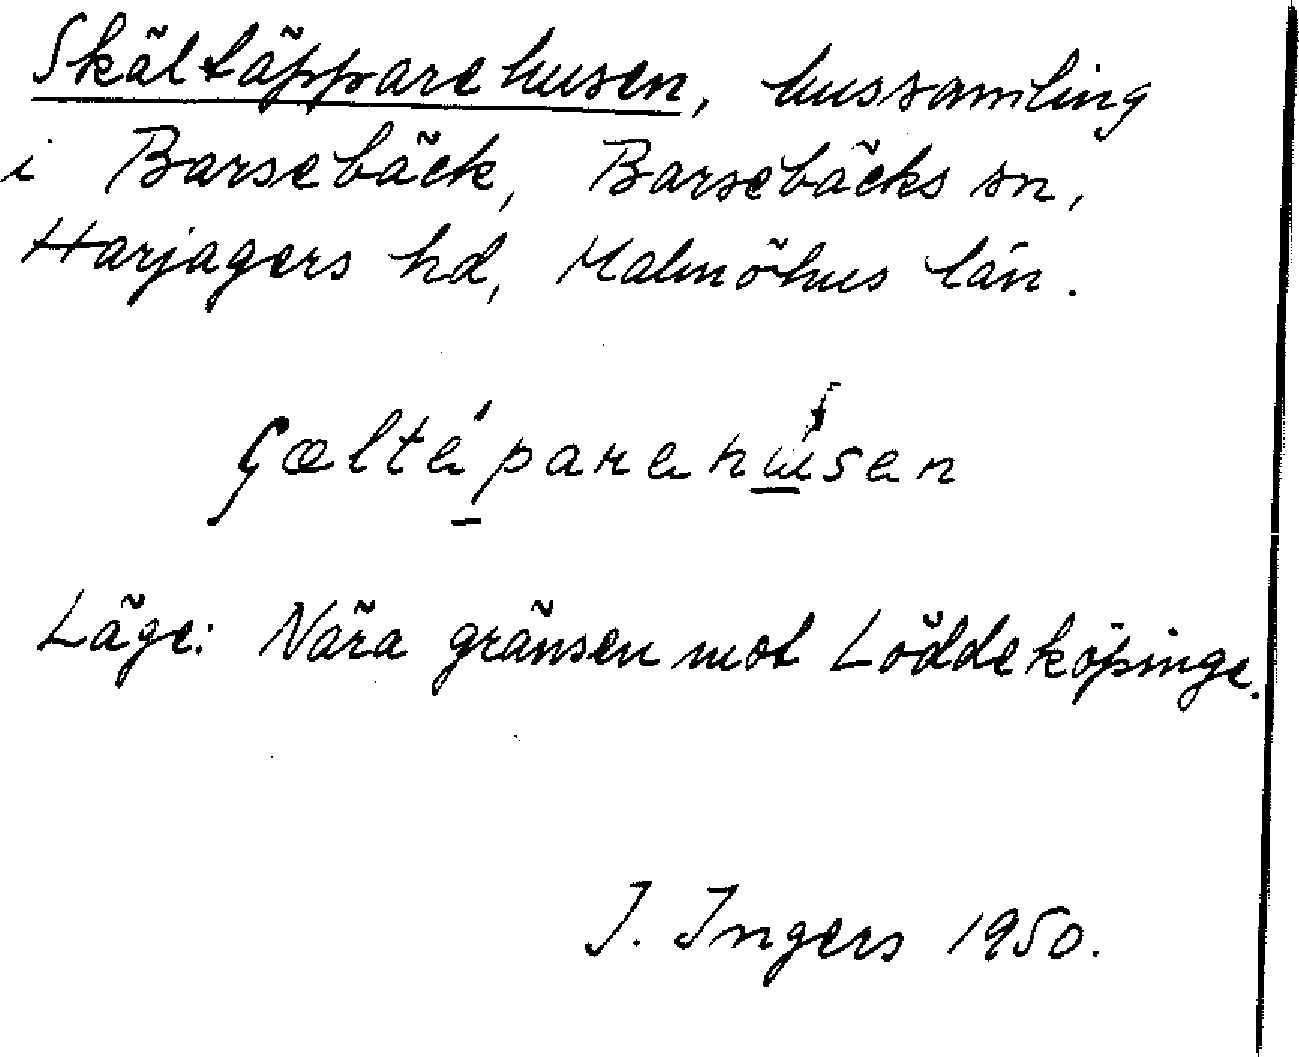 Skältäpparehusen, hussamling
i Barsebäck, Barsebäcks sn,
Harjagers hd, Malmöhus län.
Läge: Nära gränsen mot Löddeköpinge.
I. Ingers 1950.